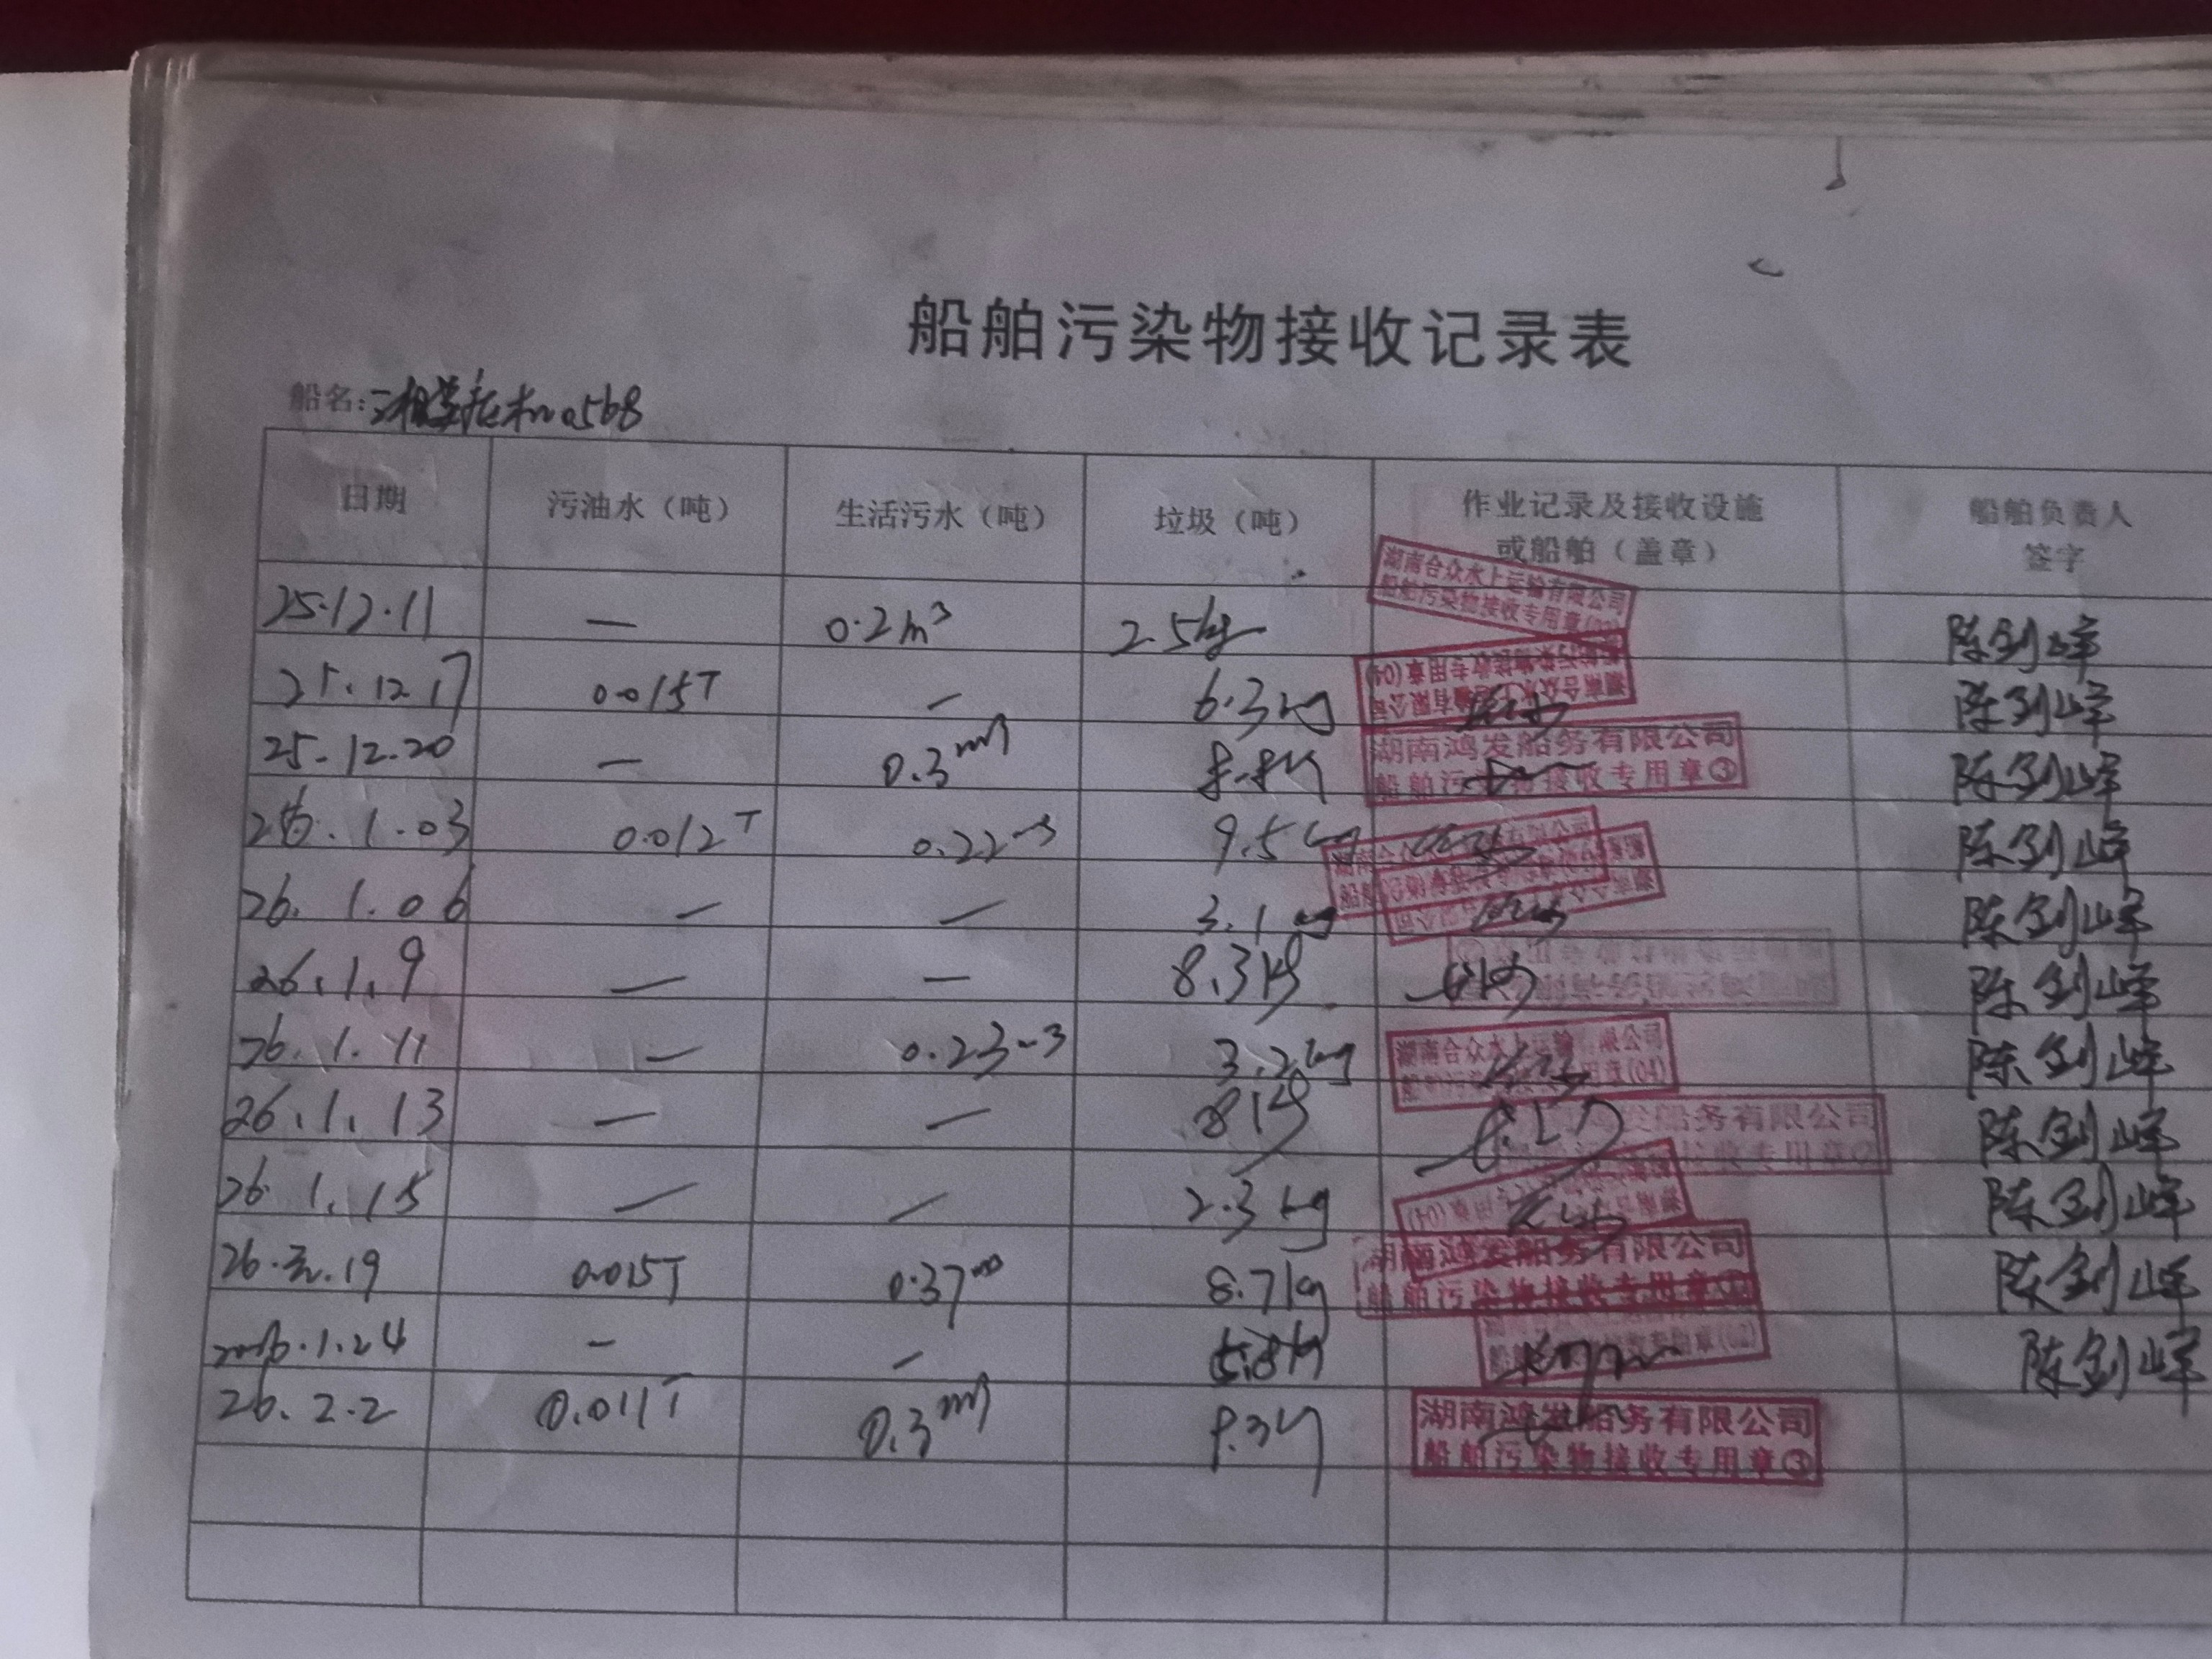 船舶污染物接收记录表
船名: 0568
日期 污油水（吨） 生活污水（吨） 垃圾（吨） 作业记录及接收设施 船舶负责人
或船舶（盖章） 签字
湖南合众水上运输有限公司
船舶污染物接收专用章
25.12.11 — 0.2m³ 2.5kg 陈剑峰
湖南合众水上运输有限公司
船舶污染物接收专用章(04)
25.12.17 0.015T — 6.3kg 陈剑峰
湖南鸿发船务有限公司
船舶污染物接收专用章③
25.12.20 — 0.3m³ 8.8kg 陈剑峰
26.1.03 0.012T 0.22m³ 9.5kg 陈剑峰
26.1.06 — — 3.1kg 陈剑峰
26.1.9 — — 8.3kg 陈剑峰
湖南合众水上运输有限公司
船舶污染 用章(04)
26.1.11 — 0.23m³ 3.2kg 陈剑峰
发船务有限公司
接收专用章
26.1.13 — — 8kg 陈剑峰
26.1.15 — — 2.3kg 陈剑峰
湖南鸿发船务有限公司
船舶污染物接收专用章
26. .19 0.015T 0.37m³ 8.7kg 陈剑峰
专用章(02)
2026.1.24 — — 5.8kg 陈剑峰
湖南鸿发船务有限公司
船舶污染物接收专用章③
26.2.2 0.011T 0.3m³ 8.3kg